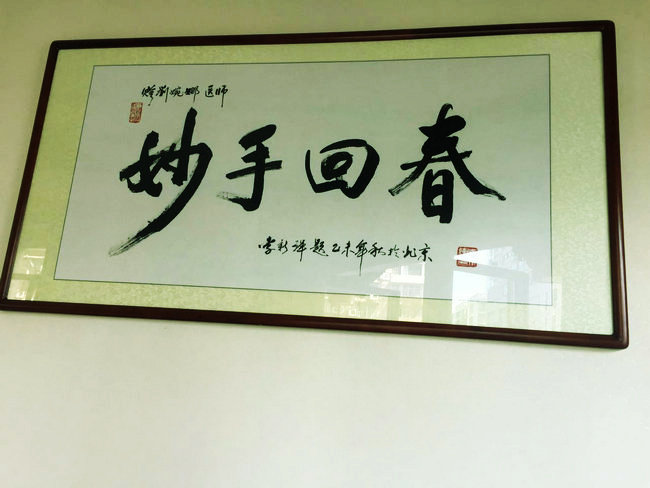 赠刘婉娜医师
妙手回春
李新祥题乙未年秋于北京